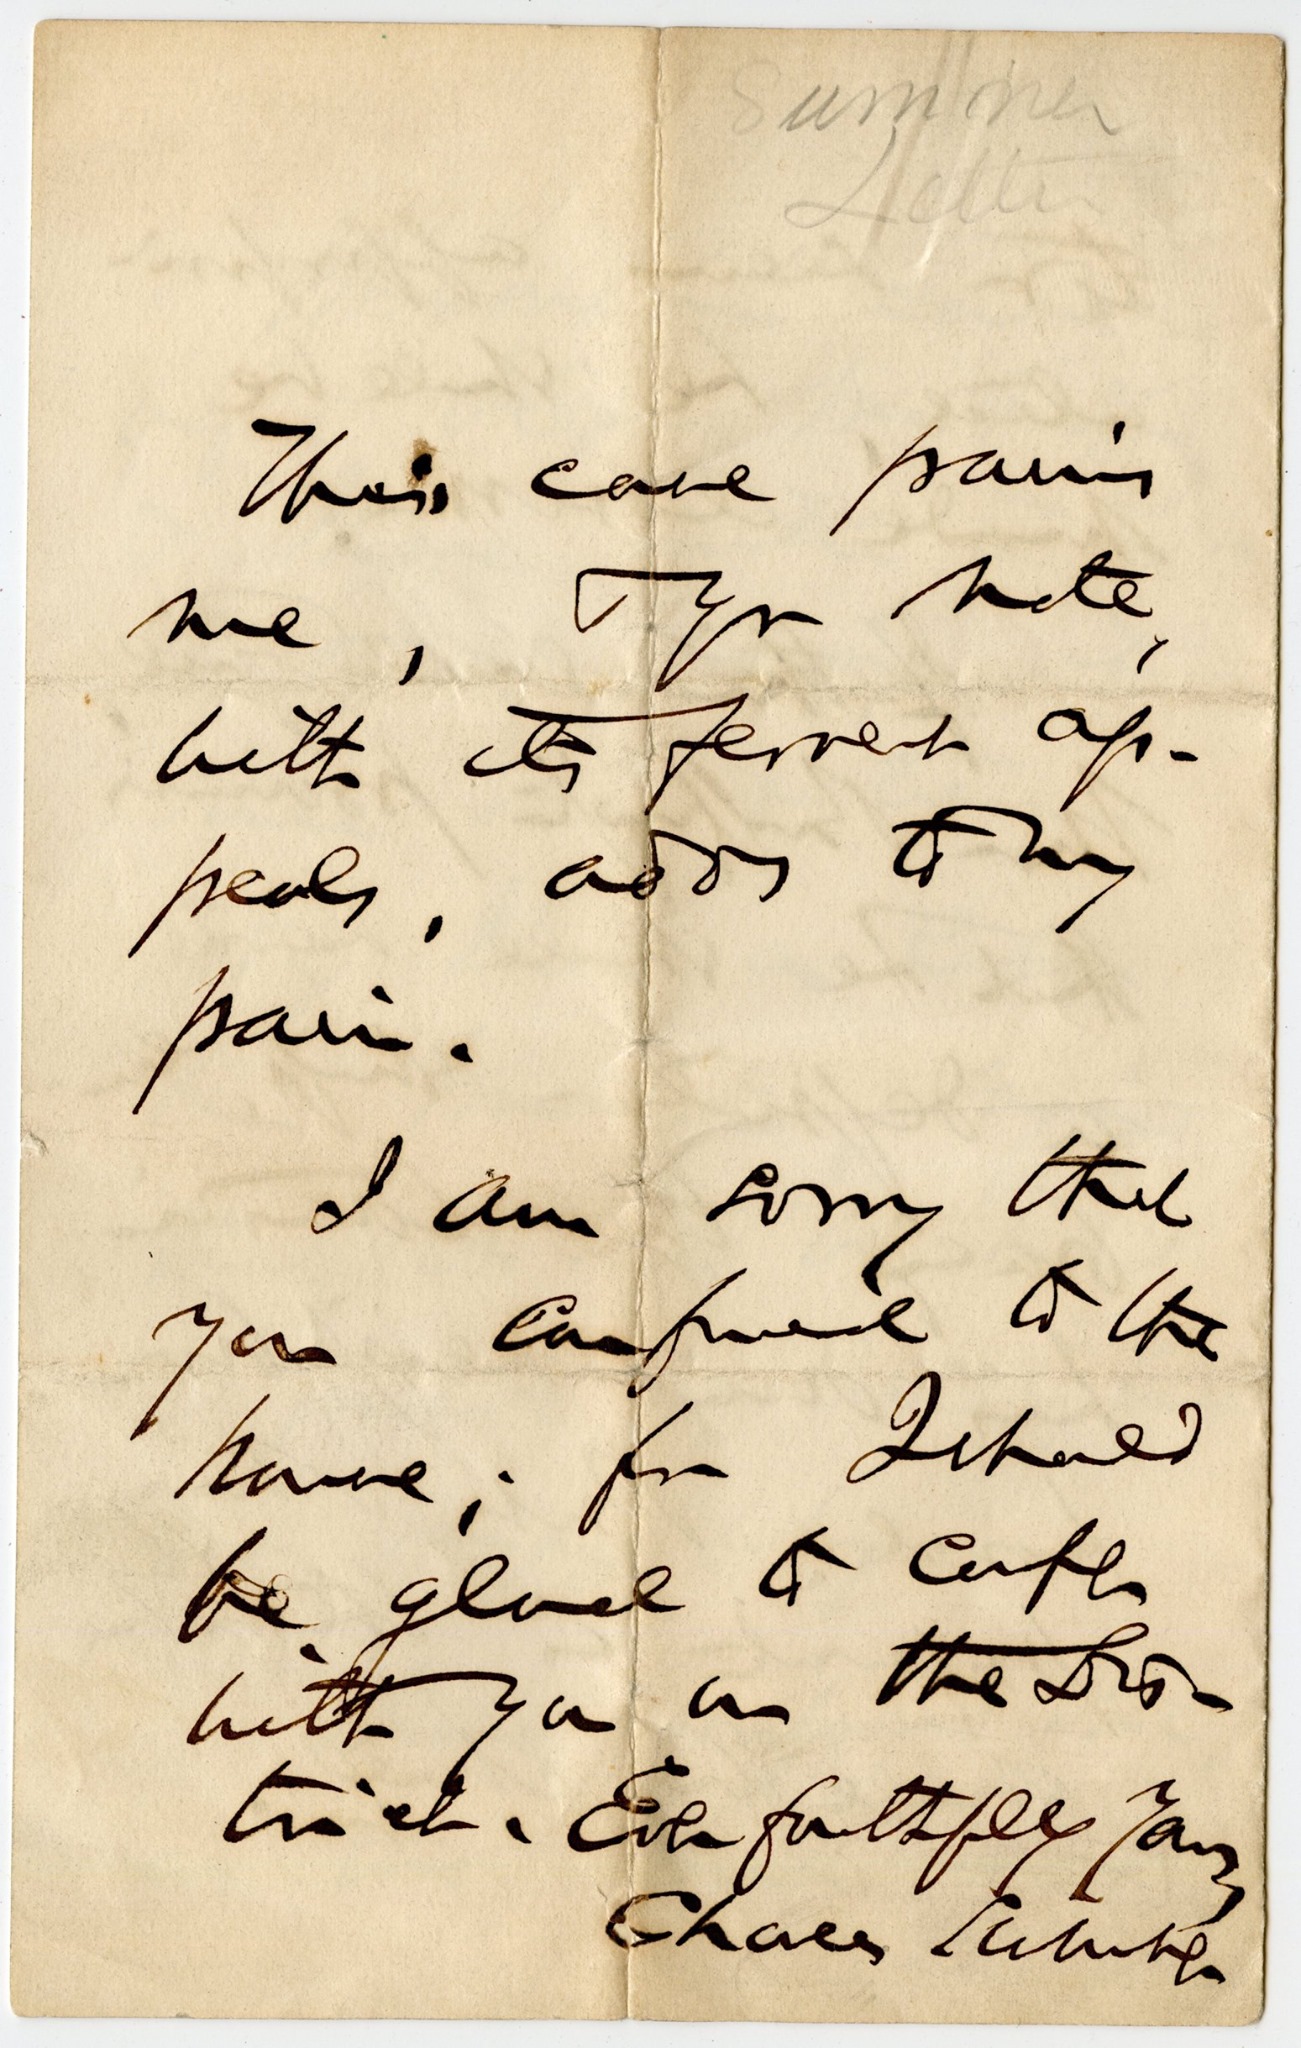 Sumner
Letter
This case pains
me, & yr note,
with its fervent ap-
peals, adds to my
pain.
I am sorry that
you confined to the
house; for I should
be glad to confer
with you on the Dis-
trict. Ever faithfully Yours,
Charles Sumner